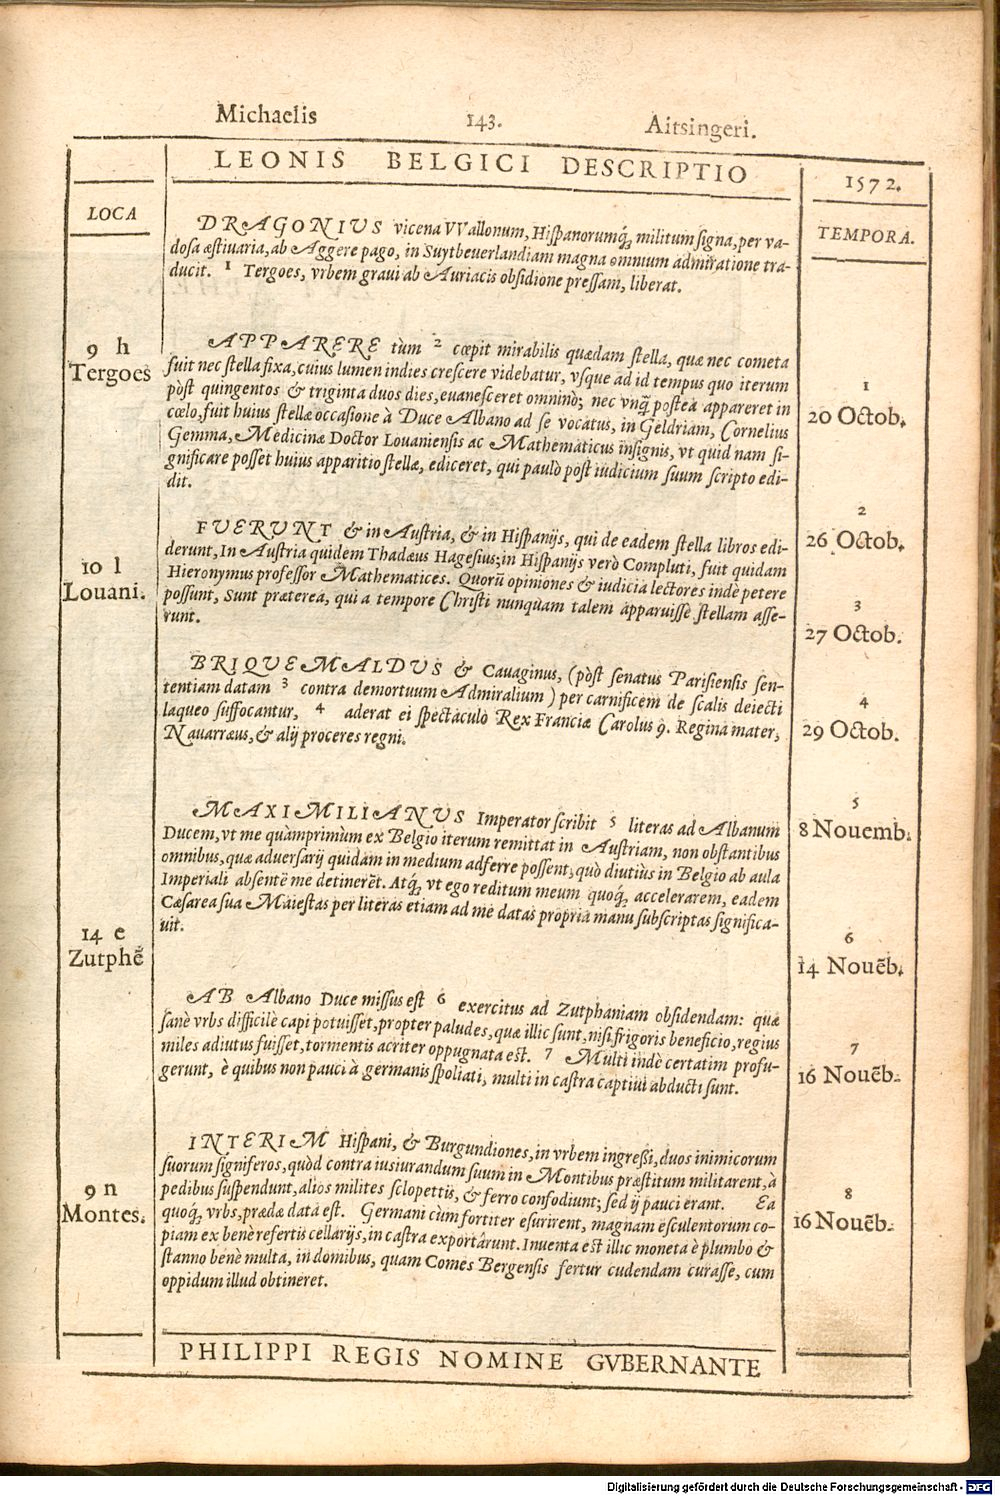 Michaelis 143. Aitsingeri.
LEONIS BELGICI DESCRIPTIO
1572.
LOCA
TEMPORA.
DRAGONIUS vicena VVallonum, Hiſpanorumq́; militum ſigna, per va-
doſa æſtiuaria, ab Aggere pago, in Suytbeuerlandiam magna omnium admiratione tra-
ducit. 1 Tergoes, vrbem graui ab Auriacis obſidione preſſam, liberat.
9 h
Tergoes
1
20 Octob.
APPARERE tùm 2 cœpit mirabilis quædam ſtella, quæ nec cometa
fuit nec ſtella fixa, cuius lumen indies creſcere videbatur, vſque ad id tempus quo iterum
pòſt quingentos & triginta duos dies, euaneſceret omninò; nec vnq̃ poſtea appareret in
cœlo, fuit huius ſtellæ occaſione à Duce Albano ad ſe vocatus, in Geldriam, Cornelius
Gemma, Medicinæ Doctor Louanienſis ac Mathematicus inſignis, vt quid nam ſi-
gnificare poſſet huius apparitio ſtellæ, ediceret, qui paulò pòſt iudicium ſuum ſcripto edi-
dit.
2
26 Octob.
FUERUNT & in Auſtria, & in Hiſpanijs, qui de eadem ſtella libros edi-
derunt, In Auſtria quidem Thadæus Hageſius; in Hiſpanijs verò Compluti, fuit quidam
Hieronymus profeſſor Mathematices. Quorũ opiniones & iudicia lectores indè petere
poſſunt, Sunt præterea, qui a tempore Chriſti nunquàm talem apparuiſſe ſtellam aſſe-
runt.
10 l
Louani.
3
27 Octob.
BRIQUEMALDUS & Cauaginus, (pòſt ſenatus Pariſienſis ſen-
tentiam datam 3 contra demortuum Admiralium) per carnificem de ſcalis deiecti
laqueo ſuffocantur, 4 aderat ei ſpectaculo Rex Franciæ Carolus 9. Regina mater,
Nauarræus, & alij proceres regni.
4
29 Octob.
MAXIMILIANUS Imperator ſcribit 5 literas ad Albanum
Ducem, vt me quàmprimùm ex Belgio iterum remittat in Auſtriam, non obſtantibus
omnibus, quæ aduerſarij quidam in medium adferre poſſent, quò diutiùs in Belgio ab aula
Imperiali absentē me detinerēt. Atq́; vt ego reditum meum quoq́; accelerarem, eadem
Cæſarea ſua Maieſtas per literas etiam ad me datas propria manu ſubſcriptas ſignifica-
uit.
5
8 Nouemb.
14 e
Zutphē
6
14 Nouēb.
AB Albano Duce miſſus eſt 6 exercitus ad Zutphaniam obſidendam: quæ
ſanè vrbs difficilè capi potuiſſet, propter paludes, quæ illic ſunt, niſi frigoris beneficio, regius
miles adiutus fuiſſet, tormentis acriter oppugnata eſt. 7 Multi indè certatim profu-
gerunt, è quibus non pauci à germanis ſpoliati, multi in caſtra captiui abducti ſunt.
7
16 Nouēb.
INTERIM Hiſpani, & Burgundiones, in vrbem ingreſsi, duos inimicorum
ſuorum ſigniferos, quòd contra iusiurandum ſuum in Montibus præſtitum militarent, à
pedibus ſuſpendunt, alios milites ſclopettis, & ferro confodiunt; ſed ij pauci erant. Ea
quoq́; vrbs, prædæ data eſt. Germani cùm fortiter eſurirent, magnam eſculentorum co-
piam ex benè refertis cellarijs, in caſtra exportârunt. Inuenta eſt illic moneta è plumbo &
ſtanno benè multa, in domibus, quam Comes Bergenſis fertur cudendam curaſſe, cum
oppidum illud obtineret.
9 n
Montes.
8
16 Nouēb.
PHILIPPI REGIS NOMINE GVBERNANTE
Digitalisierung gefördert durch die Deutsche Forschungsgemeinschaft - DFG